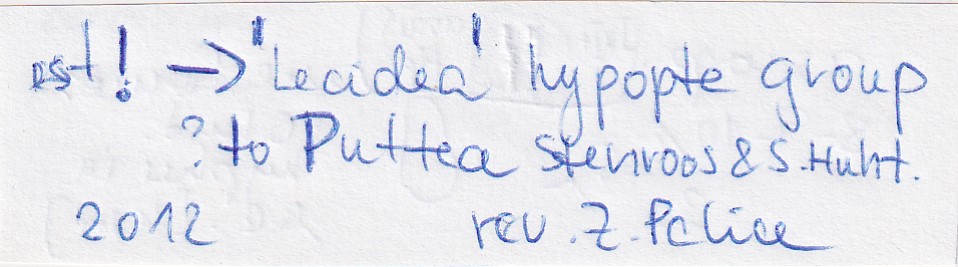 est! → "Lecidea" hypopte group
? to Puttea Stenroos & S. Huht.
2012 rev. Z. Palice